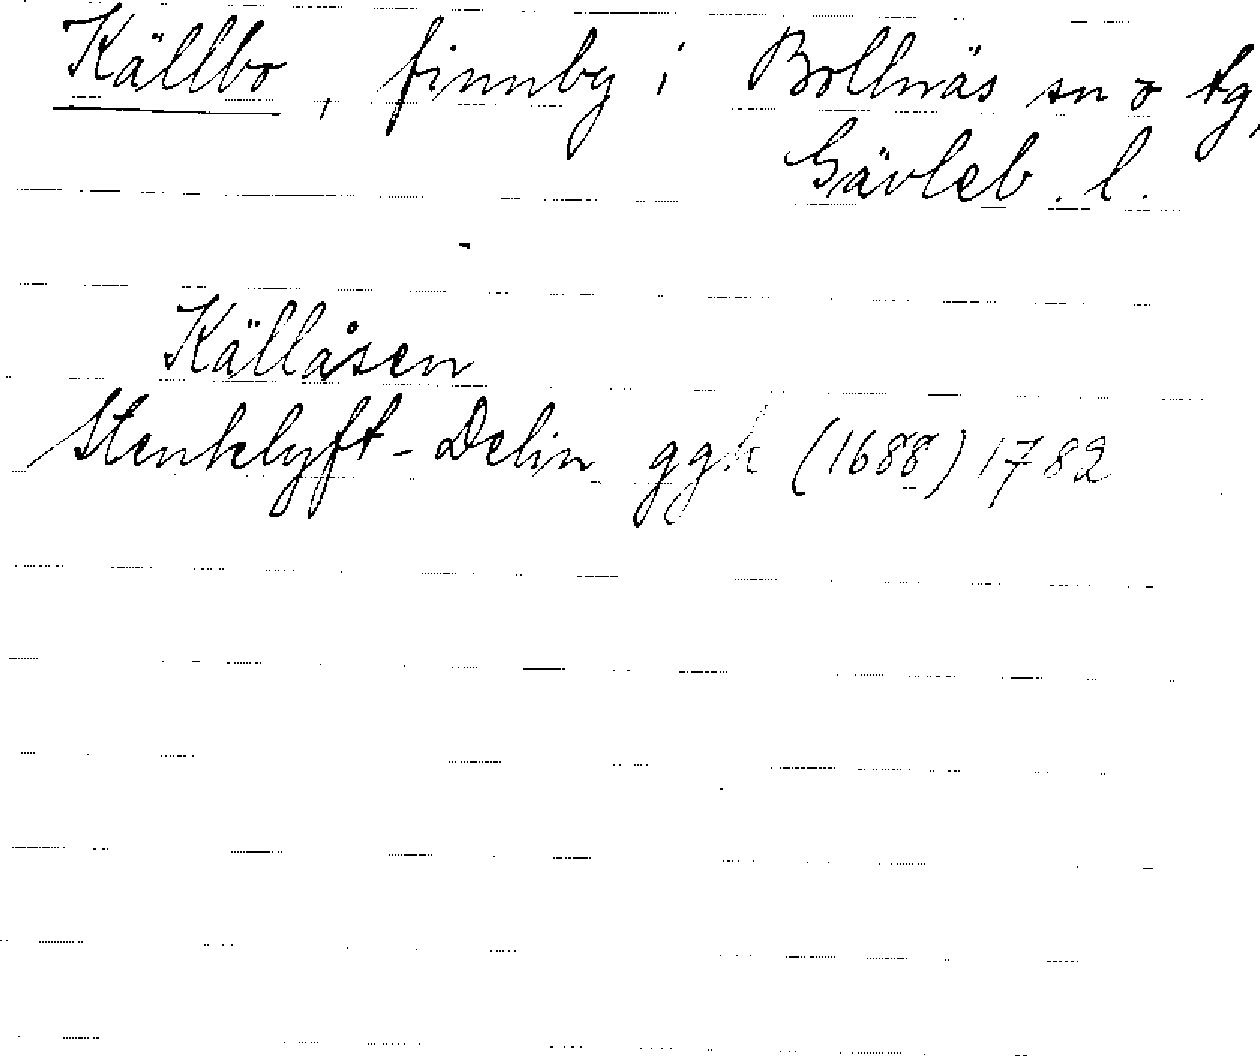 Källbo, finnby i Bollnäs sn o tg,
Gävleb. l.
Källåsen
Stenklyft-Delin ggk (1688) 1782